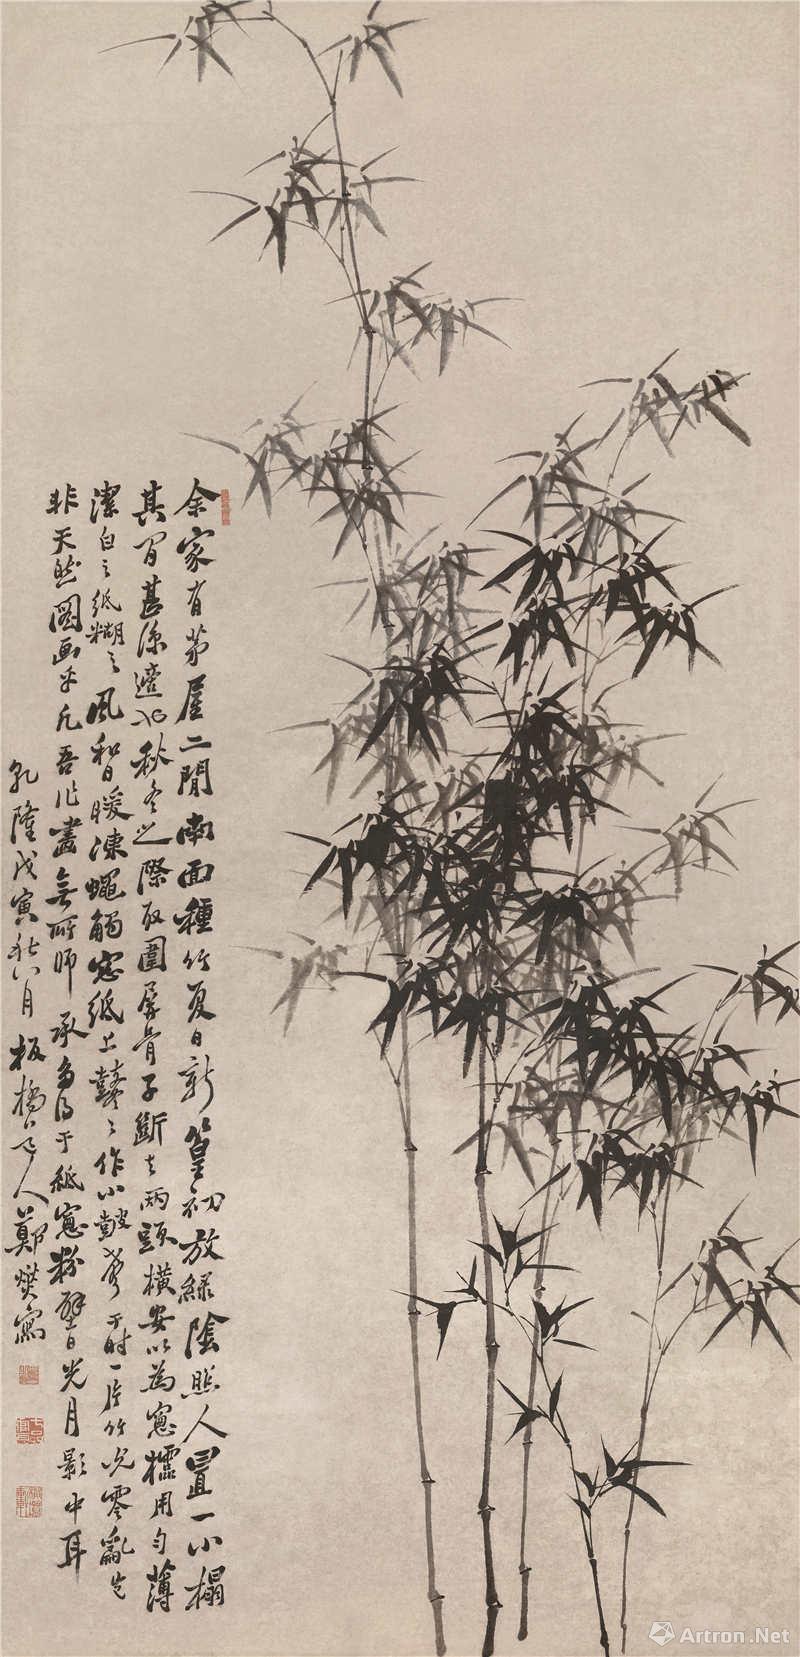 余家有茅屋二間南面種竹夏日新篁初放綠陰照人置一小榻
其間甚涼適也秋冬之際取圍屏骨子斷去兩頭橫安以為窗櫺用勻薄
潔白之紙糊之風和日暖凍蠅觸窗紙上鼕鼕作小鼓聲于時一片竹影零亂豈
非天然圖畫乎凡吾作畫無所師承多得于紙窗粉壁日光月影中耳
乾隆戊寅秋八月板橋道人鄭燮寫
Artron.Net